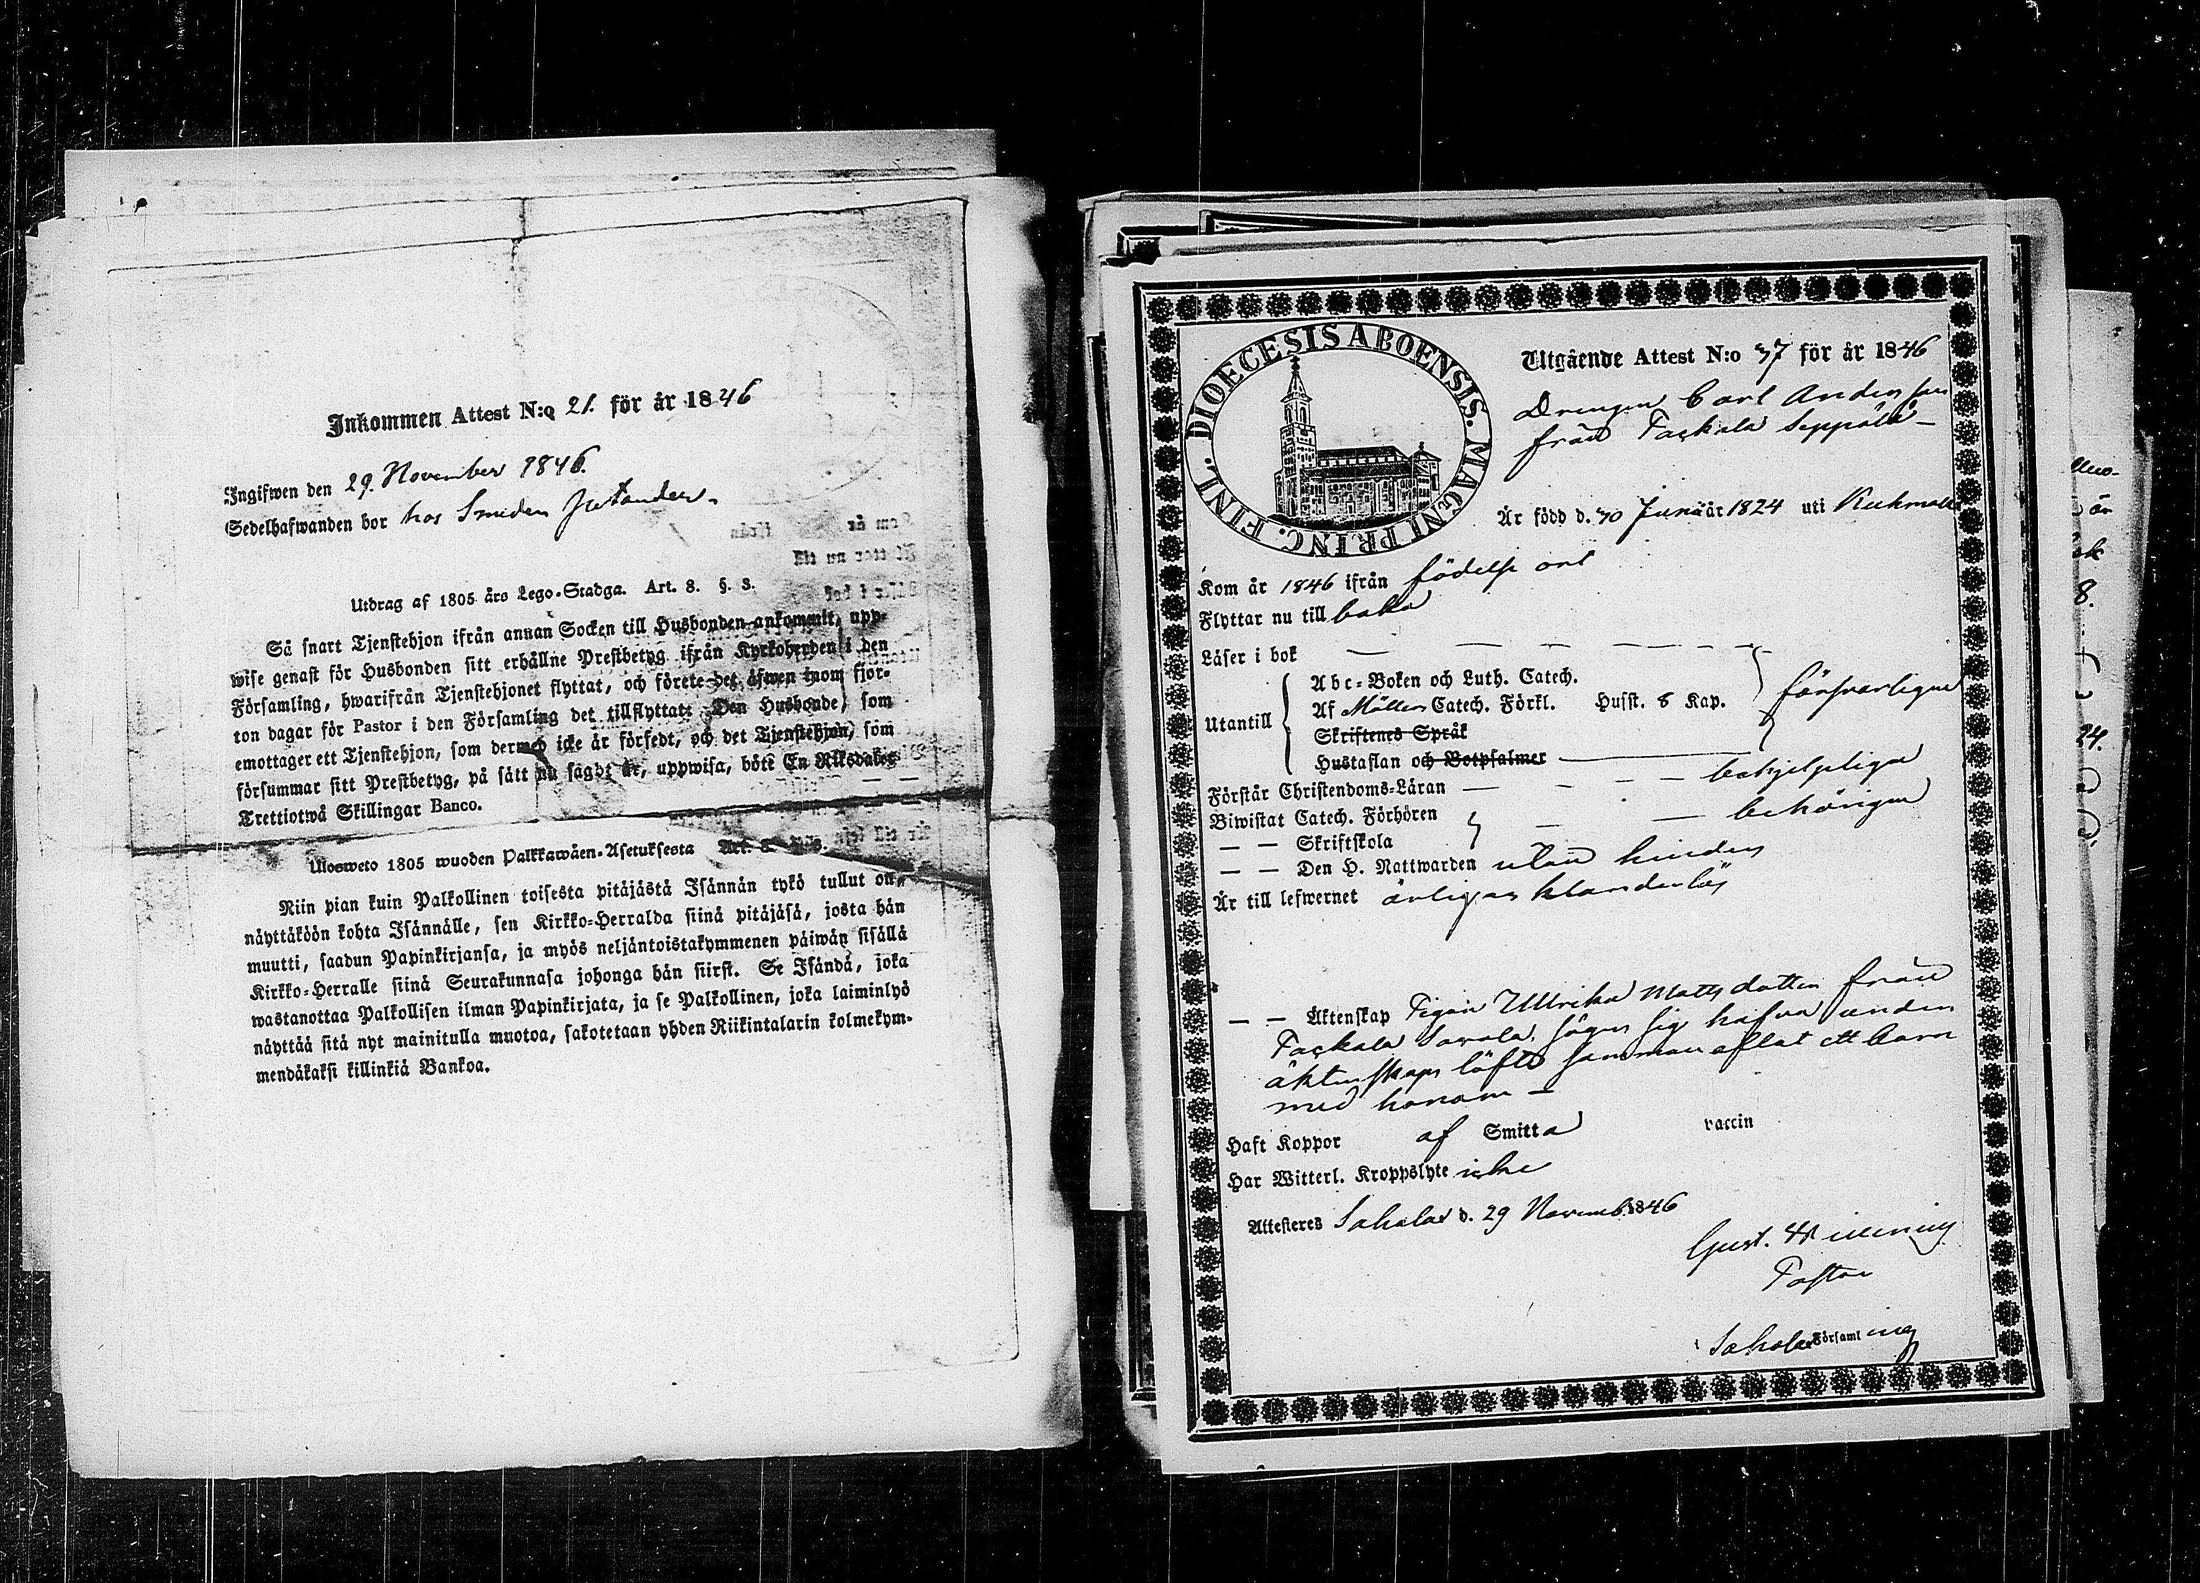 Inkommen Attest N:o 21. för år 1846
Ingifwen den 29. November 1846.
Sedelhafwanden bor hos Smeden
Utdrag af 1805 års Lego-Stadga. Art. 8. §. 3.
Så snart Tjenstehjon ifrån annan Socken till Husbonden ankommit, upp-
wise genast för Husbonden sitt erhållne Prestbetyg ifrån Kyrkoherden i den
Församling, hwarifrån Tjenstehjonet flyttat, och förete det äfwen inom fjor-
ton dagar för Pastor i den Församling det tillflyttat: Den Husbonde, som
emottager ett Tjenstehjon, som dermed icke är försedt, och det Tjenstehjon, som
försummar sitt Prestbetyg, på sätt nu sagdt är, uppwisa, böte En Riksdaler
Trettiotwå Skillingar Banco.
Ulosweto 1805 wuoden Palkkawäen-Asetuksesta Art. 8.
Niin pian kuin Palkollinen toisesta pitäjästä Isännän tykö tullut on,
näyttäköön kohta Isännälle, sen Kirkko-Herralda siinä pitäjäsä, josta hän
muutti, saadun Papinkirjansa, ja myös neljäntoistakymmenen päiwän sisällä
Kirkko-Herralle siinä Seurakunnasa johonga hän siirst. Se Isändä, joka
wastanottaa Palkollisen ilman Papinkirjata, ja se Palkollinen, joka laiminlyö
näyttää sitä nyt mainitulla muotoa, sakotetaan yhden Riikintalarin kolmekym-
mendäkaksi killinkiä Bankoa.
DIOECESIS ABOENSIS. MAGNI PRINC. FINL.
Utgående Attest N:o 37 för år 1846
Drengen Carl Andersson
från Tackala Seppälä –
Är född d. 30 Juni år 1824 uti Kuhmalax
Kom år 1846 ifrån födelse ort
Flyttar nu till baka
Läser i bok
Abc-Boken och Luth. Catech.
Utantill Af Möllers Catech. Förkl. Husst. 8 Kap. försvarligen
Skriftenes Språk
Hustaflan och Botpsalmer
Förstår Christendoms-Läran — behjelpligen
Biwistat Catech. Förhören — behörigen
— — Skriftskola
— — Den H. Nattwarden utan hinder
Är till lefwernet ärlig och klanderlös
— — Äktenskap Pigan Ullrika Mattsdotter från
Tackala Sorola, säger sig hafva under
äktenskaps löfte samman aflat ett barn
med honom –
Haft Koppor af Smitta vaccin
Har Witterl. Kroppslyte icke
Attesteras Sahalax d. 29 Novemb. 1846
Gust.
Pastor
Sahalax Församling
8.
24.